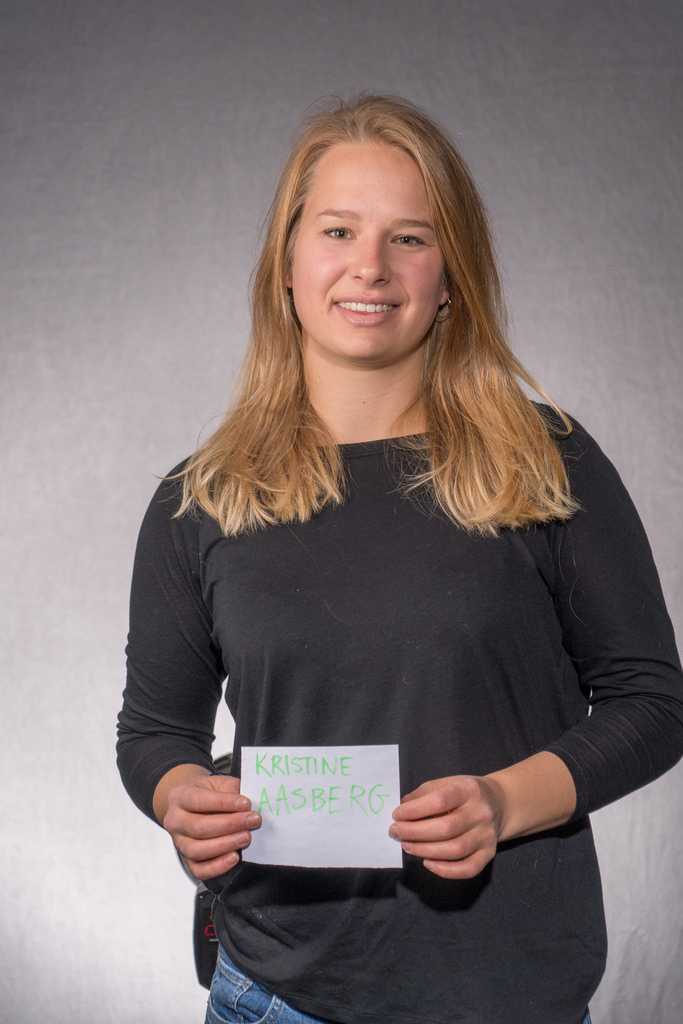 KRISTINE
AASBERG